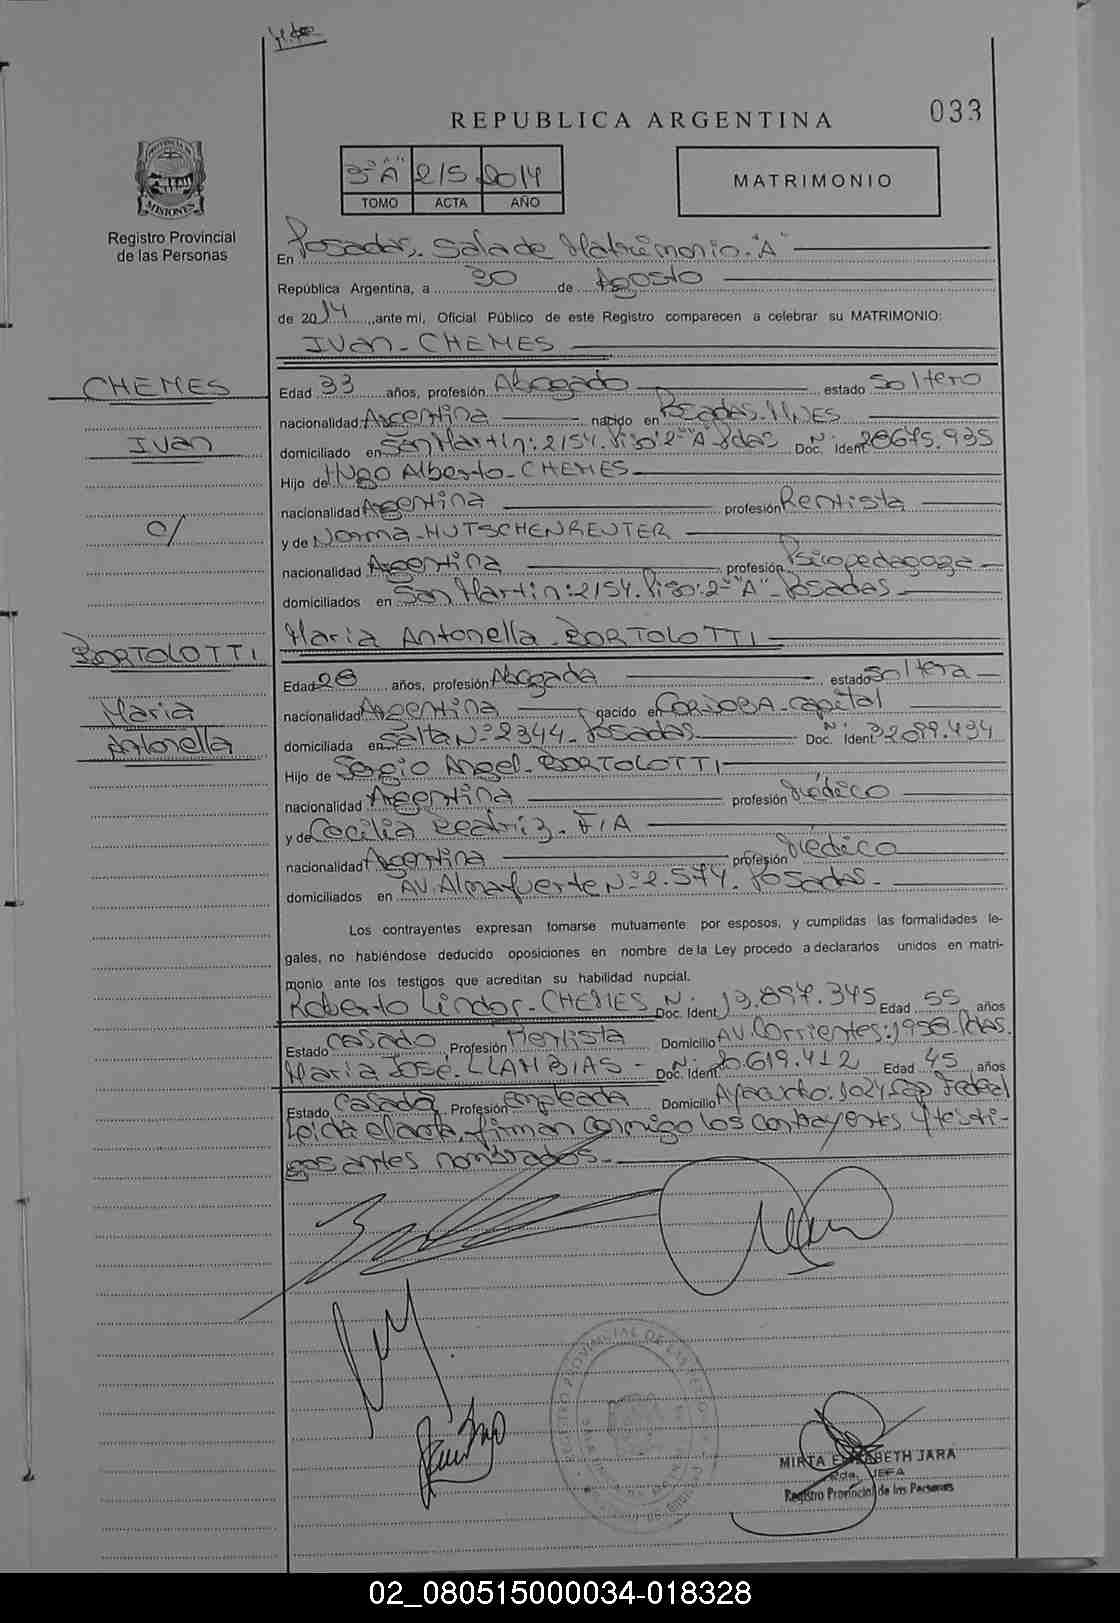 033
REPUBLICA ARGENTINA
PROVINCIA DE
MISIONES
Registro Provincial
de las Personas
3º "A" 215 2014
TOMO ACTA AÑO
MATRIMONIO
En Posadas. Sala de Matrimonio. "A"
República Argentina, a 30 de Agosto
de 2014, ante mi, Oficial Público de este Registro comparecen a celebrar su MATRIMONIO:
Ivan - CHEMES
CHEMES
Ivan
c/
BORTOLOTTI
Maria
Antonella
Edad 33 años, profesión Abogado estado Soltero
nacionalidad Argentina nacido en Posadas. Mnes
domiciliado en San Martin: 2154. Piso: 2º "A" Pdas Doc. Ident. Nº 28.675.935
Hijo de Hugo Alberto - CHEMES
nacionalidad Argentina profesión Rentista
y de Norma - HUTSCHENREUTER
nacionalidad Argentina profesión Psicopedagoga
domiciliados en San Martin: 2154. Piso: 2º "A" - Posadas
Maria Antonella - BORTOLOTTI
Edad 28 años, profesión Abogada estado Soltera
nacionalidad Argentina nacido en CORDOBA - Capital
domiciliada en Salta Nº 2344 - Posadas Doc. Ident. Nº 32.099.434
Hijo de Sergio Angel - BORTOLOTTI
nacionalidad Argentina profesión Médico
y de Cecilia Beatriz - FIA
nacionalidad Argentina profesión Médico
domiciliados en AV. Almafuerte Nº 2.574. Posadas -
Los contrayentes expresan tomarse mutuamente por esposos, y cumplidas las formalidades le-
gales, no habiéndose deducido oposiciones en nombre de la Ley procedo a declararlos unidos en matri-
monio ante los testigos que acreditan su habilidad nupcial.
Roberto Lindor - CHEMES Doc. Ident. Nº 13.897.345 Edad 55 años
Estado casado Profesión Rentista Domicilio AV. Corrientes: 1958. Pdas.
Maria José. LLAMBIAS - Doc. Ident. Nº 20.619.412 Edad 45 años
Estado casada Profesión empleada Domicilio Ayacucho: 1024 Cap Federal
Leida el acta, firman conmigo los contrayentes y testi-
gos antes nombrados.
MIRTA ELIZABETH JARA
2da. JEFA
Registro Provincial de las Personas
02_080515000034-018328